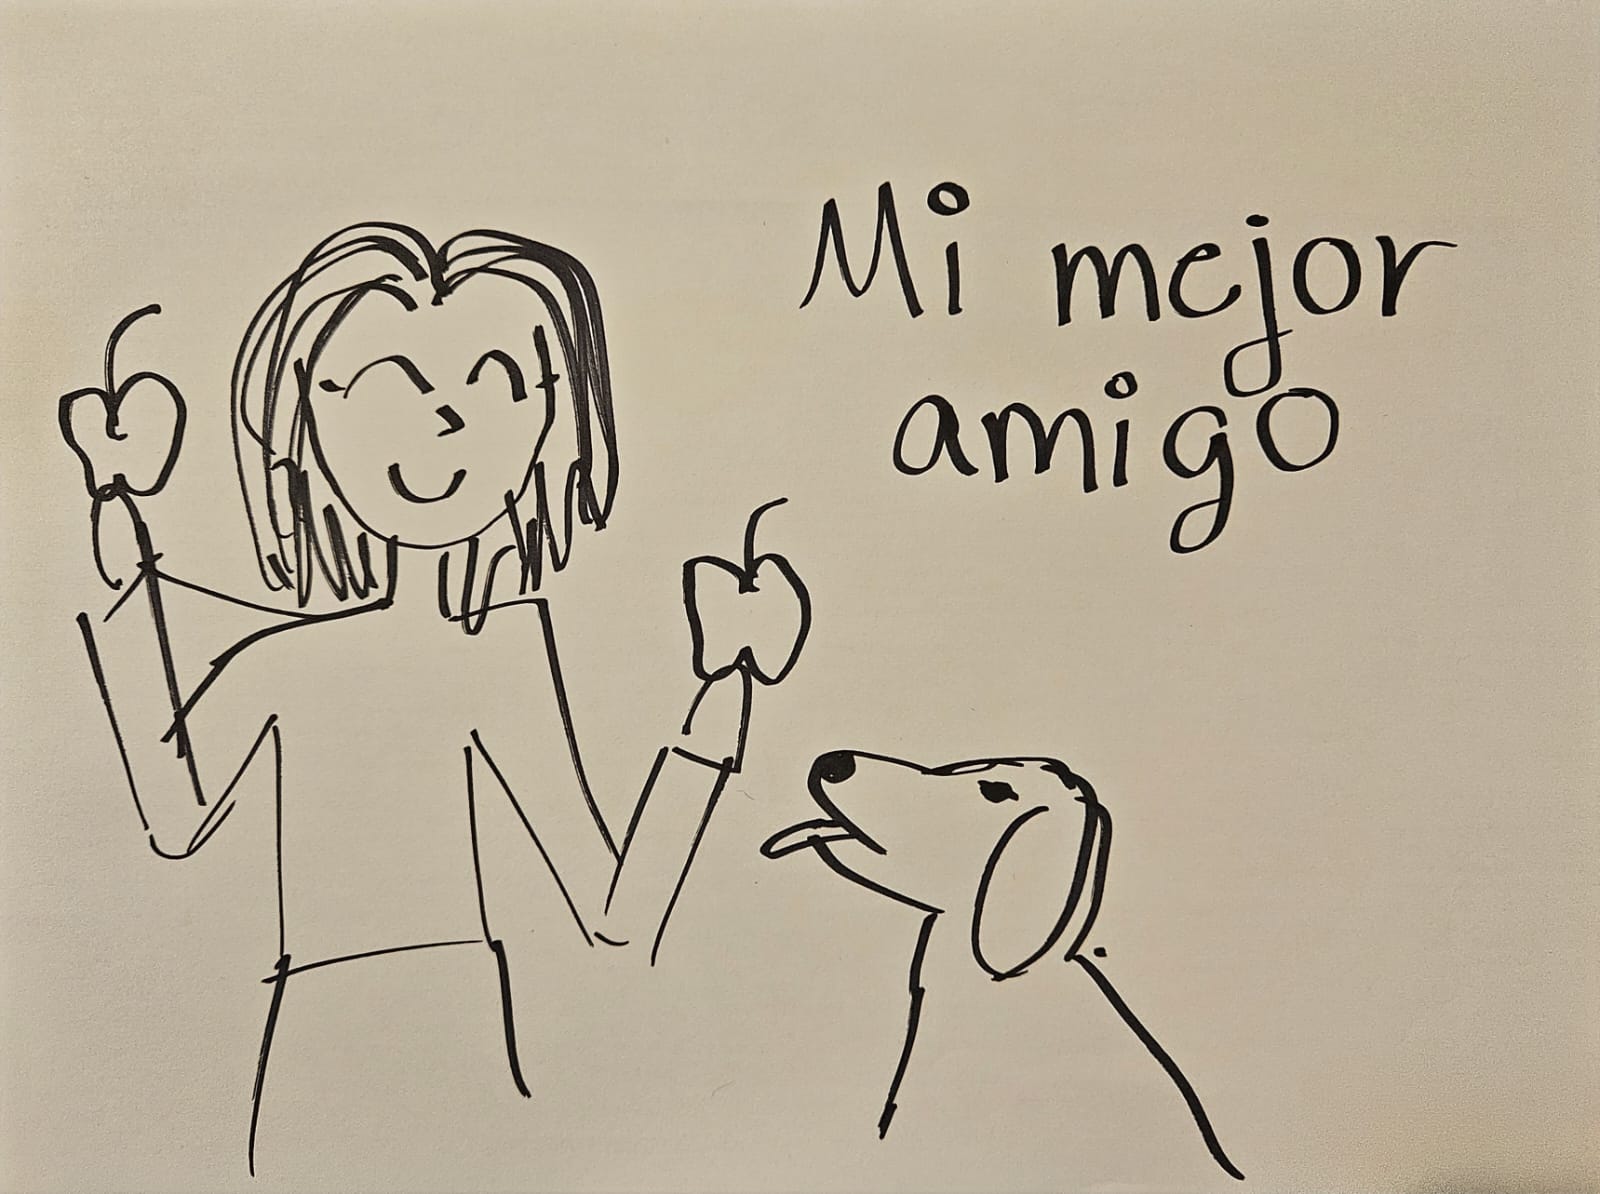 Mi mejor
amigo